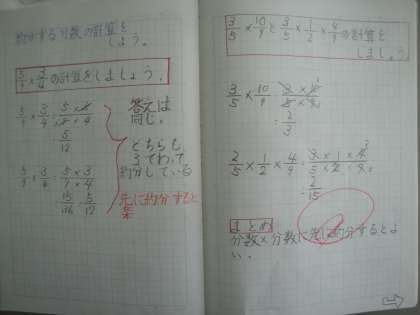 約分する分数の計算を
しよう。
5/9×3/4の計算をしましょう。
5/9×3/4=5×3/9×4
=5/12
5/9×3/4=5×3/9×4
=15/36=5/12
答えは
同じ。
どちらも
3でわって
約分している
先に約分すると
楽
3/5×10/9と3/5×1/2×4/9の計算を
しましょう。
3/5×10/9=3×10/5×9
=2/3
2/5×1/2×4/9=3×1×4/5×2×9
=2/15
まとめ
分数×分数は先に約分するとよ
い。